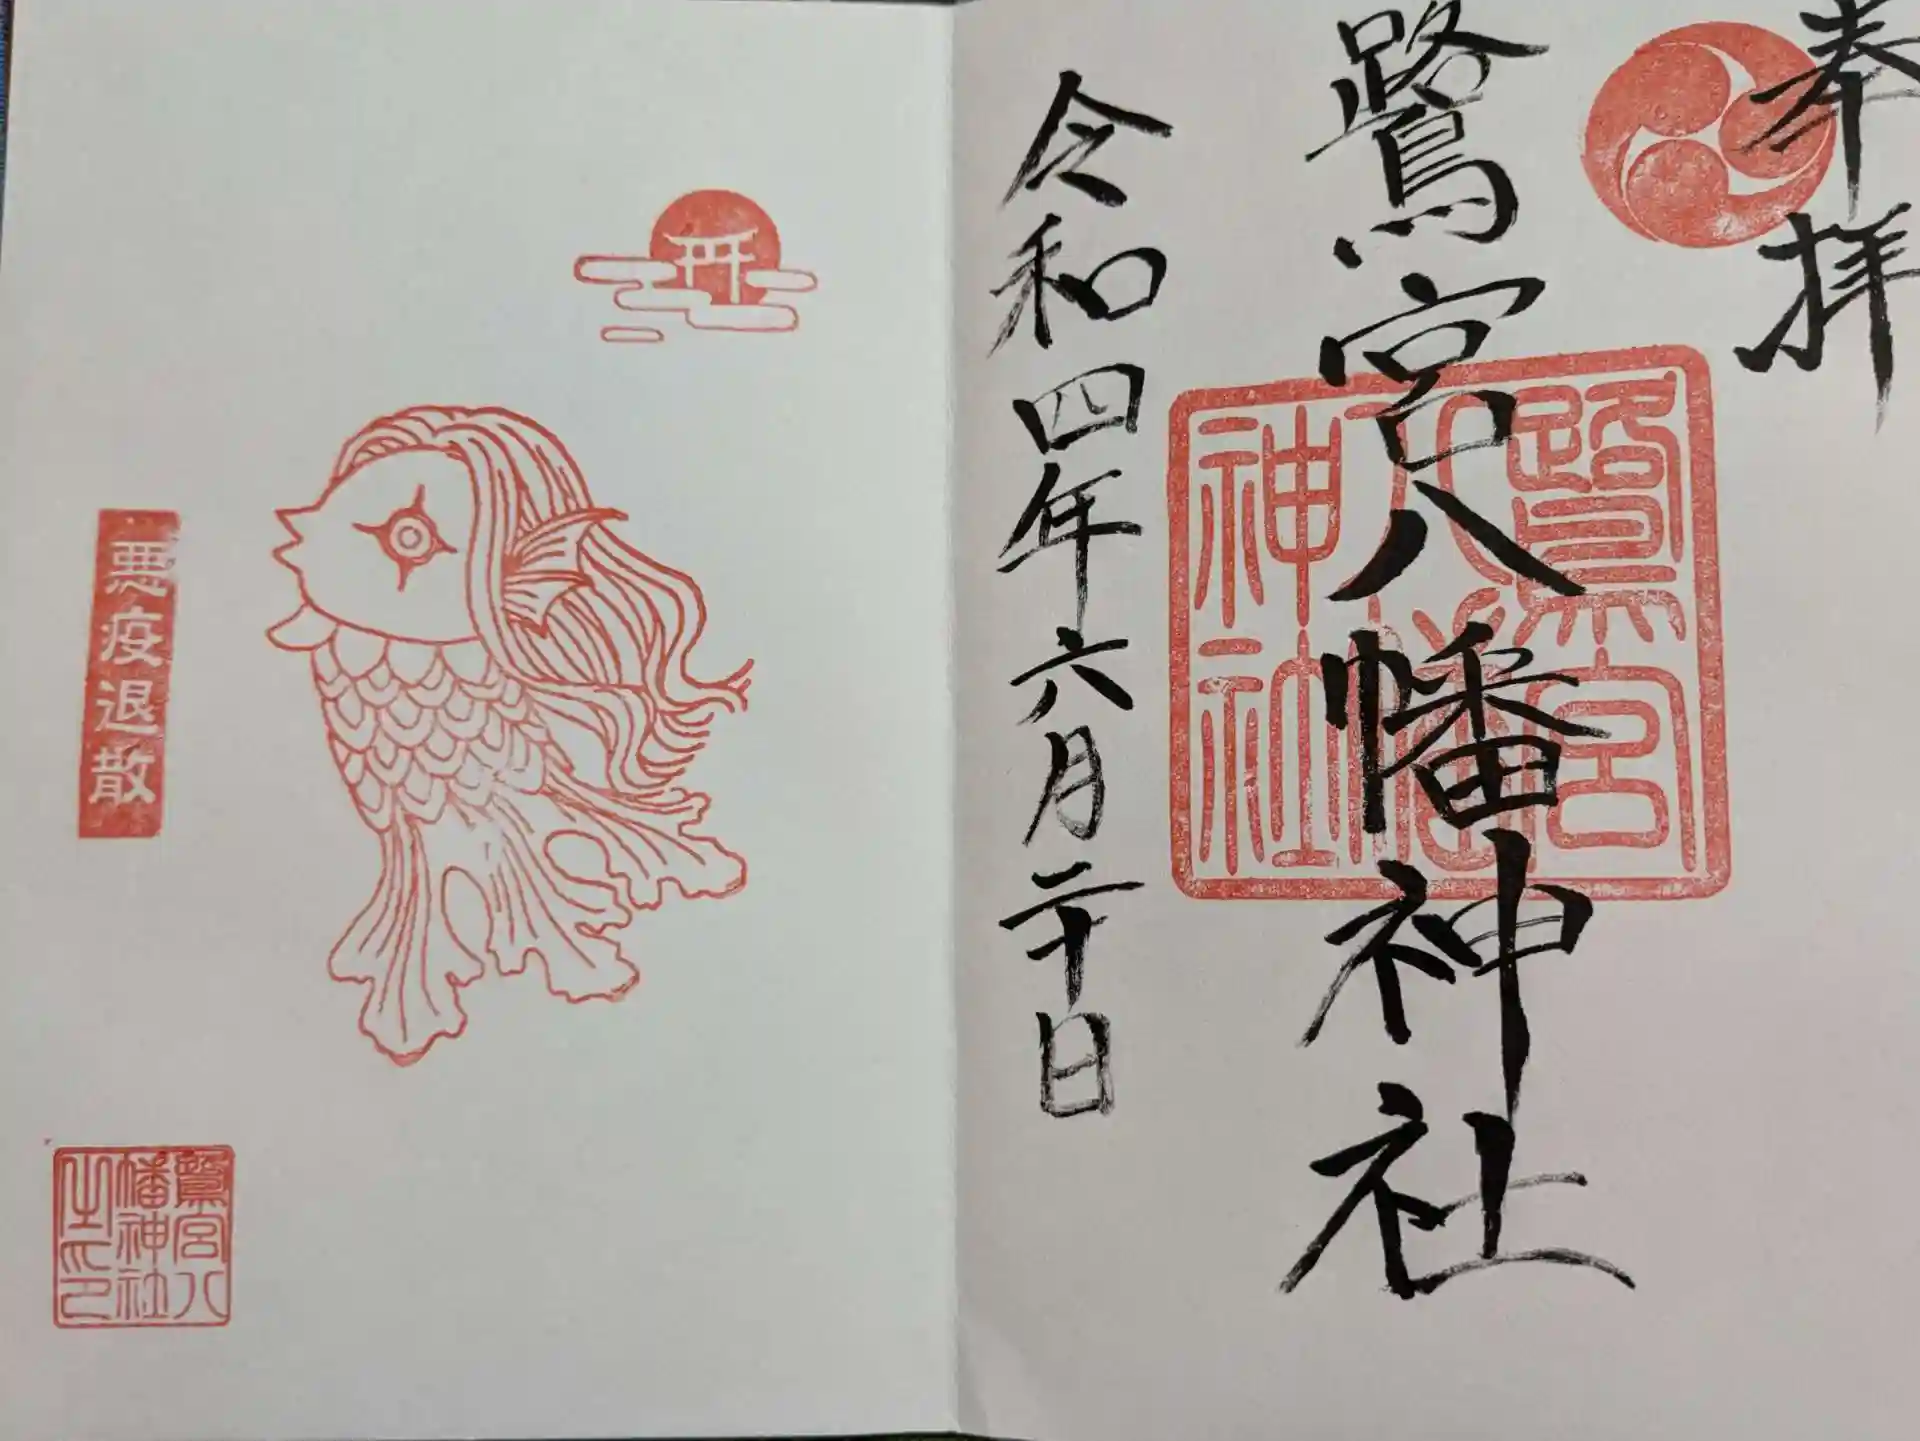 奉拝
鷺宮八幡神社
鷺宮
八幡
神社
令和四年六月二十日
悪疫退散
鷺宮八
幡神社
之印